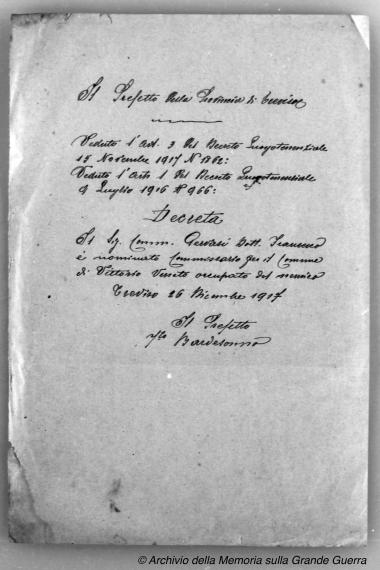 Il Prefetto della Provincia di Treviso
Veduto l'Art. 3 del Decreto Luogotenenziale
15 Novembre 1917 N.
Veduto l'Art. 1 del Decreto Luogotenenziale
9 Luglio 1916 N° 966:
Decreta
Il Sig. Comm. Gervasi Dott. Francesco
è nominato Commissario per il Comune
di Vittorio Veneto occupato dal nemico
Treviso 26 Dicembre 1917
Il Prefetto
Bardesonno
© Archivio della Memoria sulla Grande Guerra